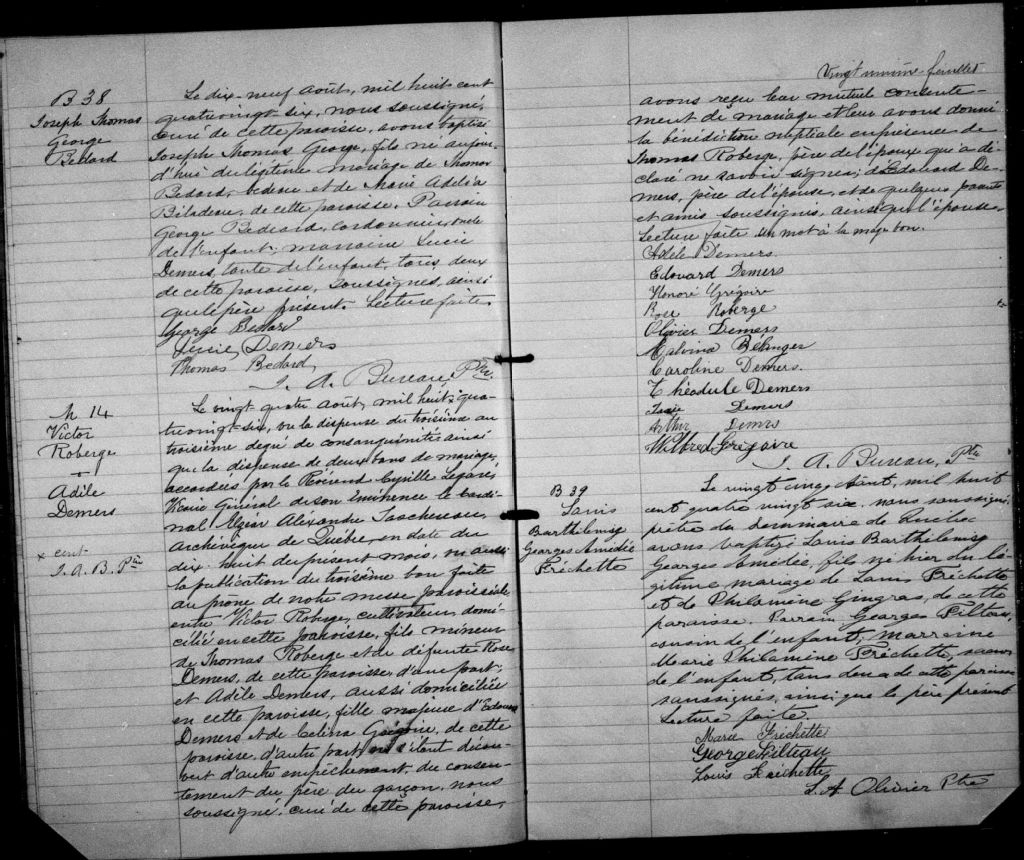 B 38
Joseph Thomas
George
Bedard
Le dix-neuf août, mil huit cent
quatrevingt-six, nous soussigné,
curé de cette paroisse, avons baptisé
Joseph Thomas George, fils né aujour-
d'hui du légitime mariage de Thomas
Bedard, bedeau et de Marie Adelia
Biladeau, de cette paroisse. Parrain
George Bedard, cordonnier, oncle
de l'enfant; marraine Lucie
Demers, tante de l'enfant, tous deux
de cette paroisse, soussignés, ainsi
que le père présent. Lecture faite.
George Bedard
Lucie Demers
Thomas Bedard
J. A. Bureau, Ptre.
M 14
Victor
Roberge
+
Adile
Demers
x cent
J. A. B. Ptre
Le vingt-quatre août, mil huit x qua-
trevingt-six, vu la dispense du troisième au
troisième degré de consanguinité ainsi
que la dispense de deux bans de mariage,
accordées par le Révérend Cyrille Legaré,
Vicaire Général de son Eminence le Cardi-
nal Elzéar Alexandre Taschereau,
Archevêque de Québec, en date du
dix-huit du présent mois, vu aussi
la publication du troisième ban faite
au prône de notre messe paroissiale
entre Victor Roberge, cultivateur, domi-
cilié en cette paroisse, fils mineur
de Thomas Roberge et de défunte Rose
Demers, de cette paroisse, d'une part;
et Adile Demers, aussi domiciliée
en cette paroisse, fille majeure d'Edouard
Demers et de Celina Grégoire, de cette
paroisse, d'autre part, ne s'étant décou-
vert d'autre empêchement, du consen-
tement du père du garçon, nous
soussigné, curé de cette paroisse,
Vingt unième feuillet
avons reçu leur mutuel consente-
ment de mariage et leur avons donné
la bénédiction nuptiale en présence de
Thomas Roberge, père de l'époux qui a dé-
claré ne savoir signer; d'Edouard De-
mers, père de l'épouse, et de quelques parents
et amis soussignés, ainsi que l'épouse.
Lecture faite. Un mot à la marge bon.
Adele Demers.
Edouard Demers
Honoré Grégoire
Rose Roberge
Olivier Demers
Malvina Bélanger
Caroline Demers.
Théodule Demers
Demers
Arthur Demers
Wilfred Grégoire
J. A. Bureau, Ptre
B 39
Louis
Barthélemy
Georges Amédée
Fréchette
Le vingt cinq Août, mil huit
cent quatre vingt six, nous soussigné,
prêtre du Séminaire de Québec
avons baptisé Louis Barthélemy
Georges Amédée, fils né hier du lé-
gitime mariage de Louis Fréchette
et de Philomène Gingras, de cette
paroisse. Parrain Georges Filteau,
cousin de l'enfant; marraine
Marie Philomène Fréchette, soeur
de l'enfant, tous deux de cette paroisse
soussignés, ainsi que le père présent
Lecture faite.
Marie Fréchette
George Filteau
Louis Fréchette
L. A Olivier Ptre